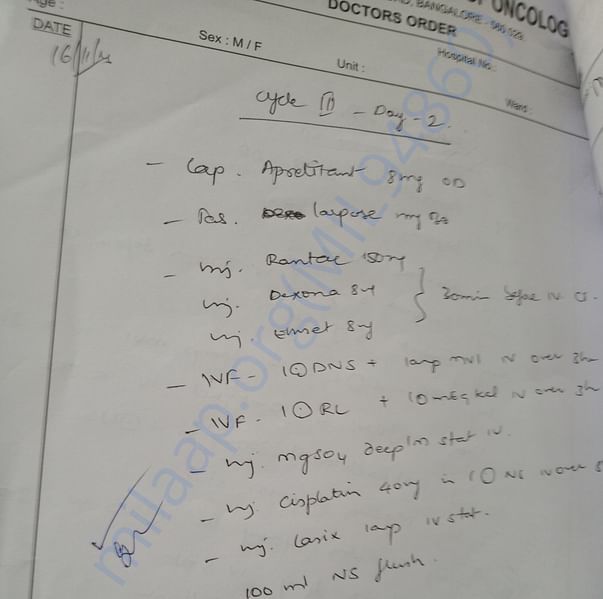 OF ONCOLOG
ROAD, BANGALORE - 560 029.
DOCTORS ORDER
Age :
Sex : M / F
Hospital No :
DATE
Unit :
Ward :
16/11/
Cycle II - Day - 2.
- Cap. Apretitant 8mg OD
- Tas.
- inj. Rantac 150mg
inj. Dexona 8mg } 30min before IV
inj. Emet 8mg
- IVF - 1 DNS + 1amp MVI IV over 3hr
- IVF - 1 RL + 10mEq kcl IV over 3hr
- inj. MgSO4 deep IM stat IV.
- inj. Cisplatin 40mg in 1 NS IV over
- inj. Lasix 1amp IV stat.
100 ml NS flush.
milaap.org(MIL948607)